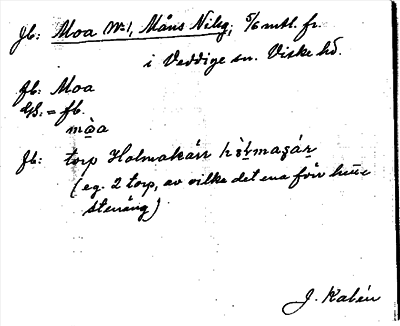 Jb: Moa No 1, Måns Nilsg, 5/6 mtl. fr.
i Veddige sn. Viske hd.
fb: Moa
Us. = fb.
mɷ̀a
fb: torp Holmakärr
(eg. 2 torp, av vilke det ena för
stenäng)
J. Kalén